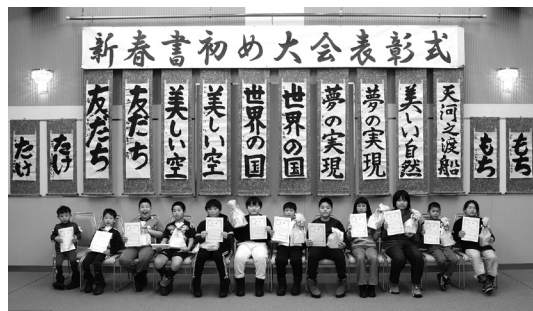 新春書初め大会表彰式
たけ
たけ
友だち
友だち
美しい空
美しい空
世界の国
世界の国
夢の実現
夢の実現
美しい自然
天河之渡船
もち
もち